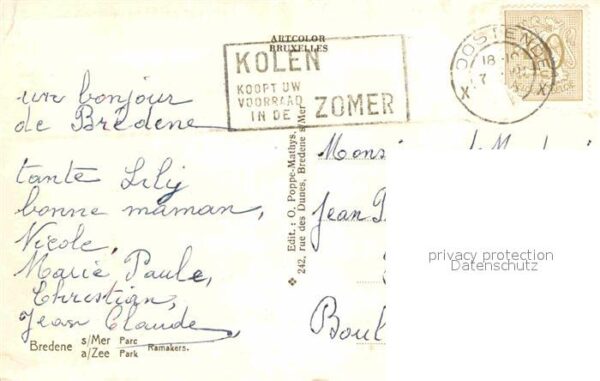 ARTCOLOR
BRUXELLES
KOLEN
KOOPT UW
VOORRAAD
IN DE ZOMER
OOSTENDE
18-
X X
un bonjour
de Bredene
tante Lily
bonne maman,
Nicole,
Marie Paule,
Christian,
Jean Claude,
Bredene s/Mer Parc
a/Zee Park Ramakers.
❖ Edit.: O. Poppe-Mathys,
242, rue des Dunes, Bredene s/Mer
Jean
privacy protection
Datenschutz